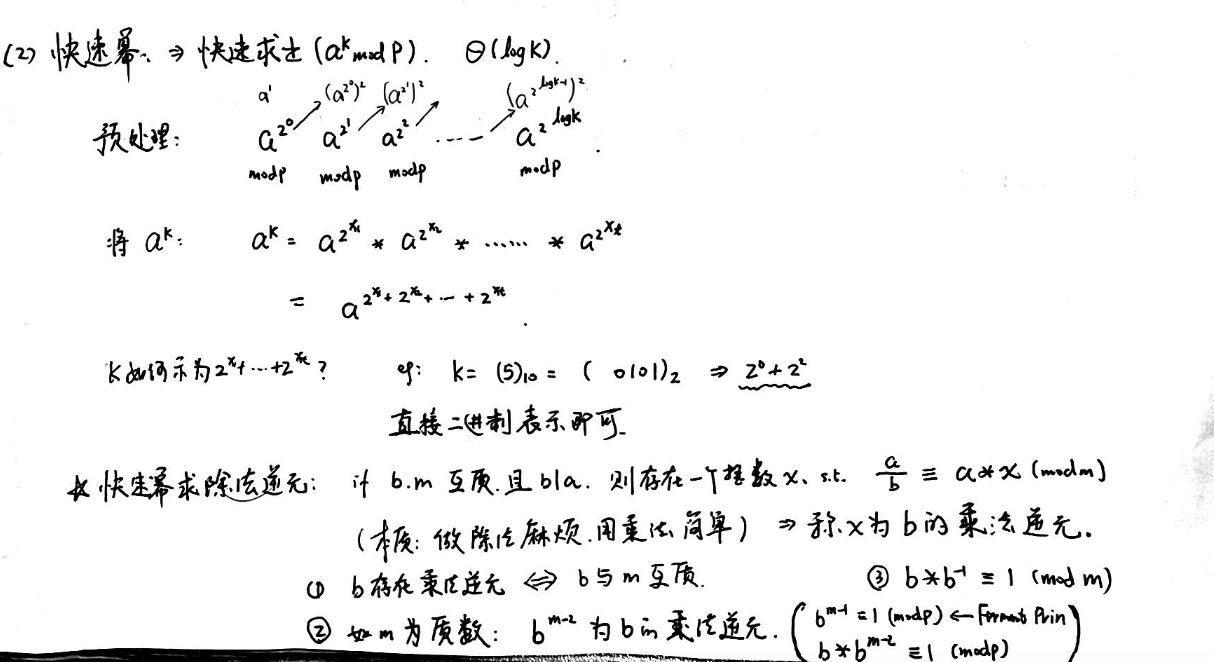 (2) 快速幂. ⇒ 快速求出 (a^k mod P). Θ(log K).
a^1 (a^{2^0})^2 (a^{2^1})^2 (a^{2^{logk-1}})^2
预处理: a^{2^0} a^{2^1} a^{2^2} ---- a^{2^{logk}}.
modp modp modp modp
将 a^k: a^k = a^{2^{x_1}} * a^{2^{x_2}} * ...... * a^{2^{x_t}}
= a^{2^{x_1}+2^{x_2}+...+2^{x_t}}.
K如何示为2^{x_1}+...+2^{x_t}? eg: k= (5)_{10} = ( 0101)_2 ⇒ 2^0+2^2
直接二进制表示即可.
☆ 快速幂求除法逆元: if b.m 互质.且 b|a. 则存在一个整数 x、s.t. a/b ≡ a*x (mod m)
(本质: 做除法麻烦.用乘法简单) ⇒ 称x为b的乘法逆元.
① b存在乘法逆元 ⇔ b与m互质. ③ b*b^{-1} ≡ 1 (mod m)
② 如m为质数: b^{m-2} 为b的乘法逆元. ( b^{m-1} = 1 (modp) ←
b*b^{m-2} ≡ 1 (modp) )